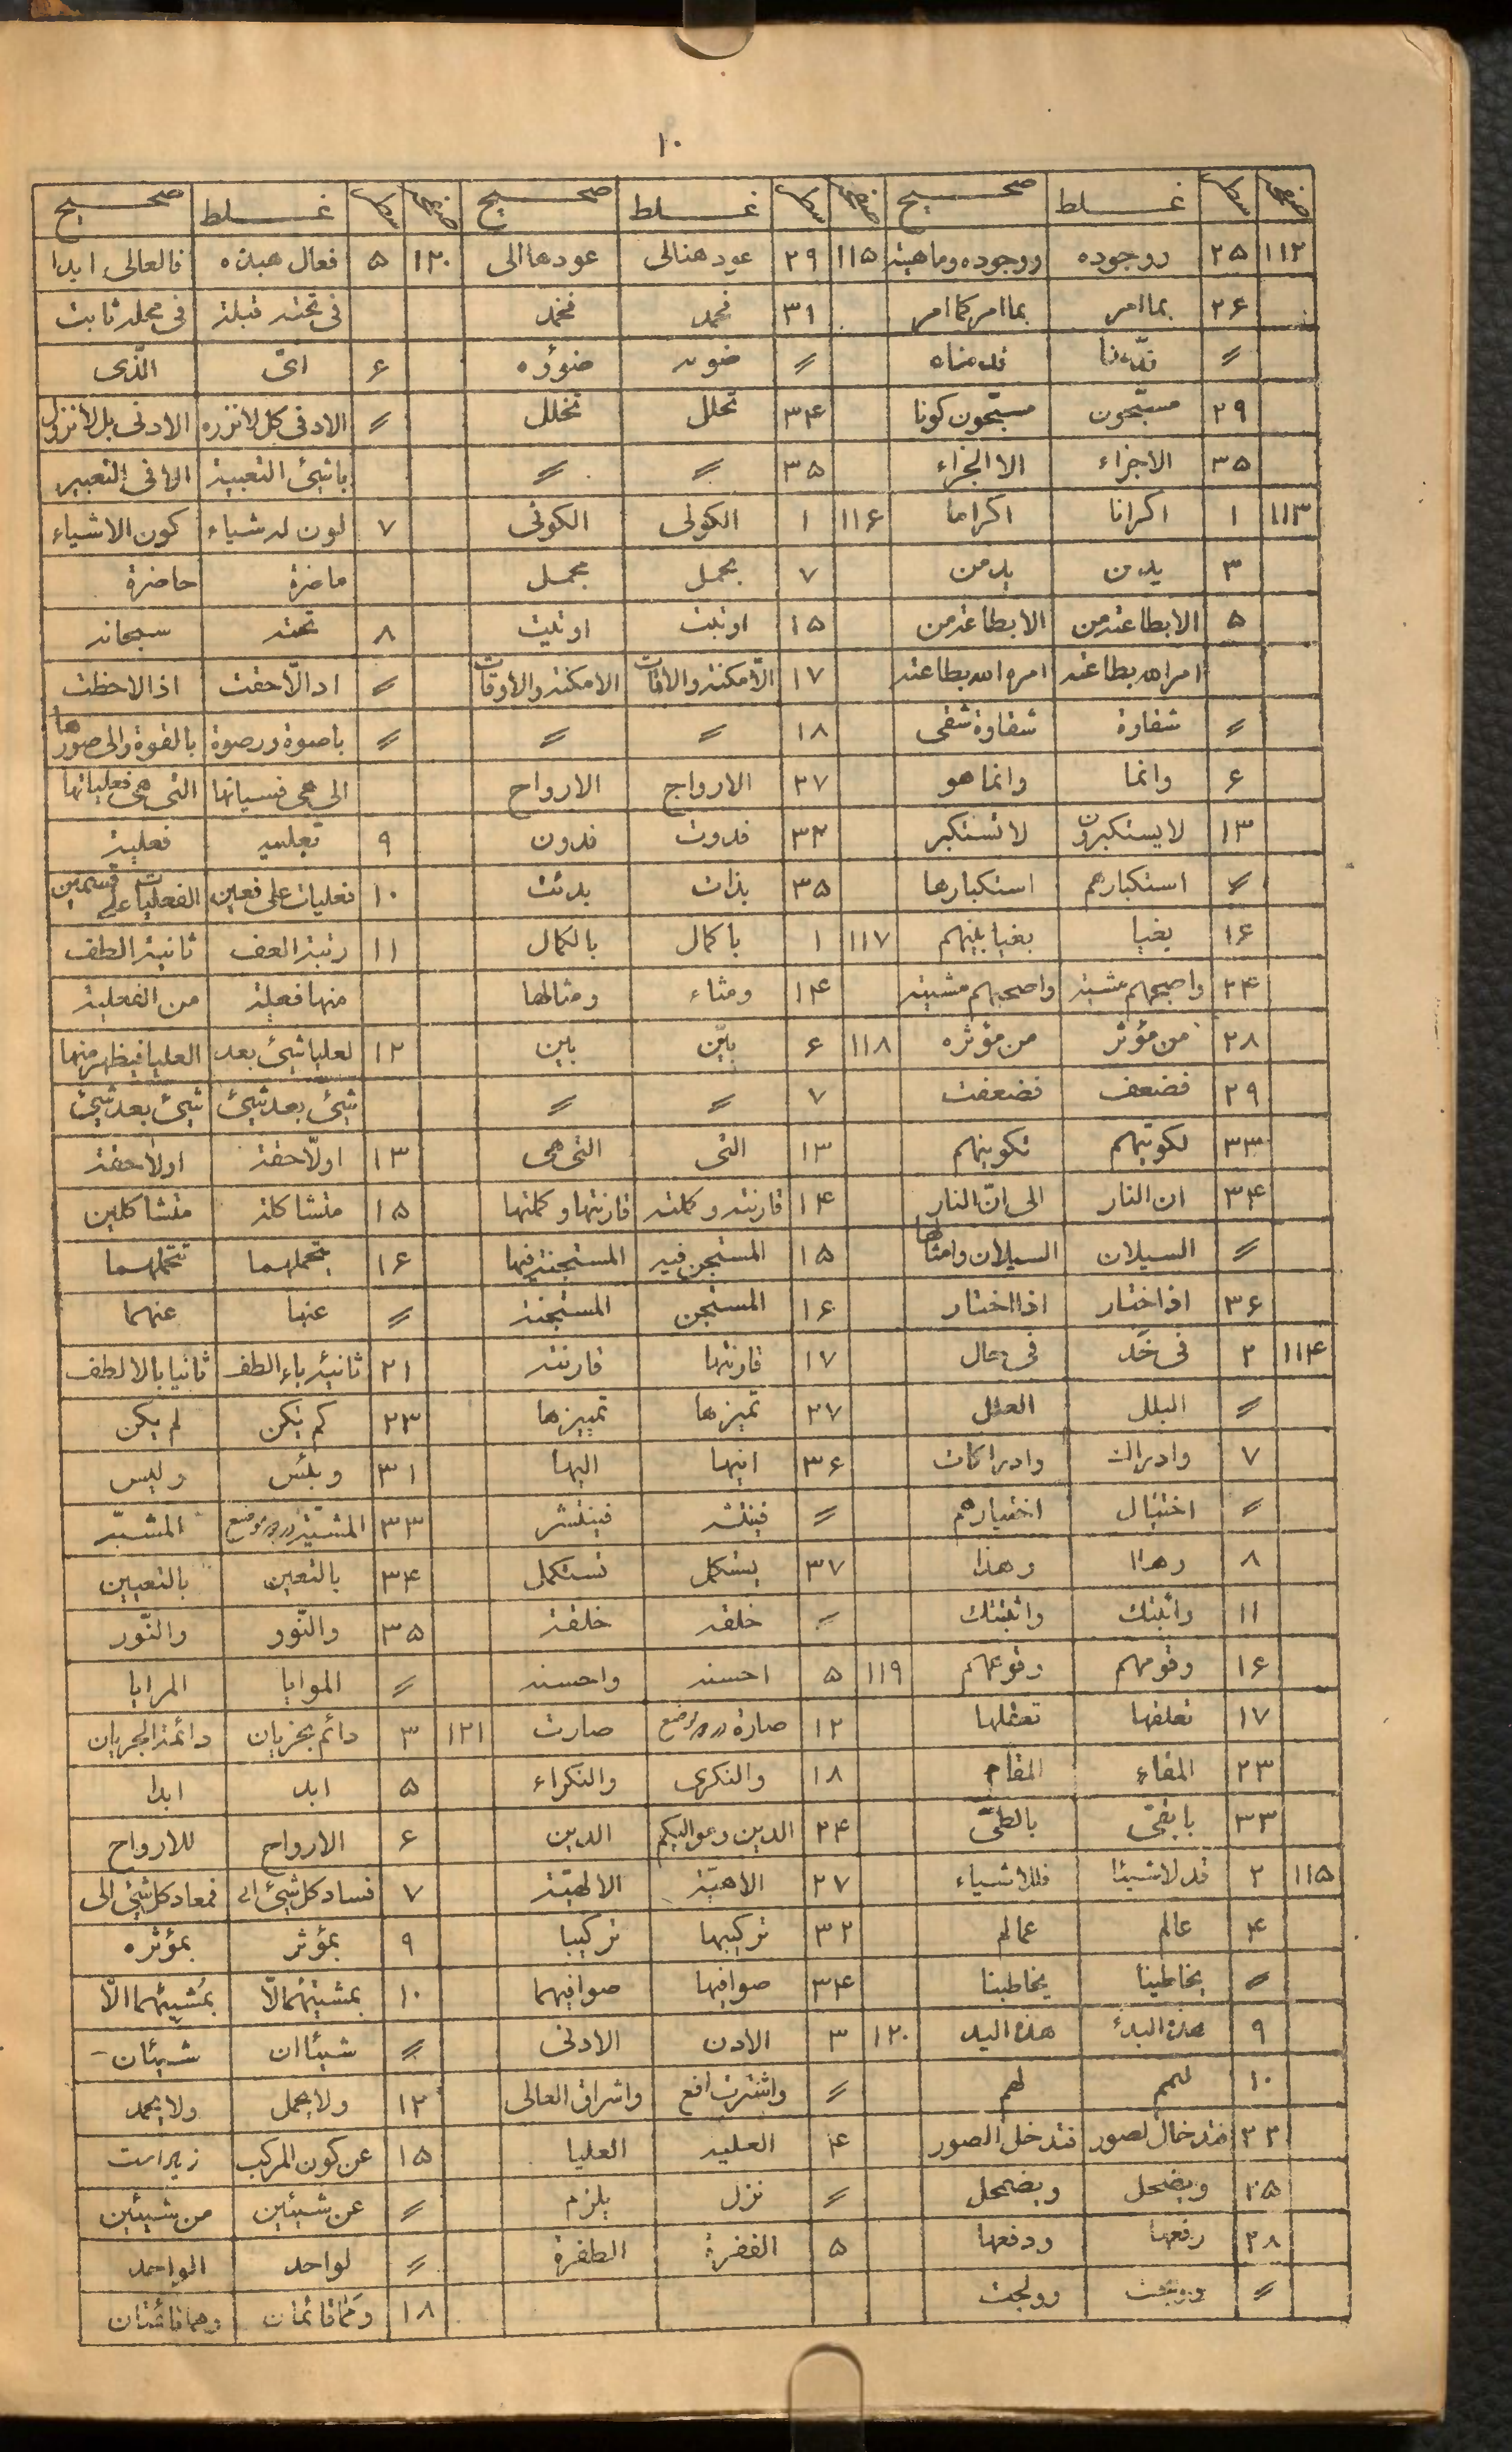 ١٠
صفحه سطر غلط صحیح صفحه سطر غلط صحیح صفحه سطر غلط صحیح
١١٢ ٢٥ ووجوده ووجوده وماهیته ١١٥ ٢٩ عود هنالی عودها الی ١٢٠ ٥ فعال هبذه فالعالی ابدا
٢۶ بما امر بما امر کما امر ٣١ فحمد فخمد فی تحته قبلة فی محله ثابت
〃 قدّمنا قدمناه 〃 ضوء ضوؤه ۶ اتی الّذی
٢٩ مسبّحون مسبّحون کونا ٣۴ تحلل تخلل 〃 الادفی کل لا نزره الادنی بل لا نزول
٣٥ الاجزاء الا الجزاء ٣٥ 〃 〃 باشئ التعبیة الا فی التعبیر
١١٣ ١ اکرانا اکراما ١١۶ ١ الکولی الکونی ٧ لون لدشیاء کون الاشیاء
٣ یدن یدمن ٧ بجمل مجمل ماضرة حاضرة
٥ الابطاعة من الابطاعة من ١٥ اوتلت اوتلیت ٨ تحته سبحانه
امر الله بطاعته امره الله بطاعته ١٧ الامکنة والاقات الامکنة والاوقات 〃 اد الّاحفت اذا لاحظت
〃 شقاوة شقاوة شقی ١٨ 〃 〃 〃 باصوة ورصوة بالقوة والی صورها
۶ وانما وانما هو ٢٧ الارواج الارواح الی هی فسیانها التی هی فعلیاتها
١٣ لایستکبرون لاتستکبر ٣٢ فدوت فدون ٩ تعلیه فعلیة
〃 استکبارهم استکبارها ٣٥ بذات بدئت ١٠ فعلیات علی فعین الفعلیات علی قسمین
١۶ بغیا بغیا بینهم ١١٧ ١ باکمال بالکمال ١١ رتبة العف ثانیة الطف
٢۴ واصبحهم مشیة واصحبهم مشیته ١۴ ومثاء ومثالها منها فعلة من الفعلیة
٢٨ من مؤثر من مؤثره ١١٨ ۶ بایّن باین ١٢ لعلیا شیئ بعد العلیا فیظهر منها
٢٩ فضعف فضعفت ٧ 〃 〃 شیئ بعد شیئ شیئ بعد شیئ
٣٣ لکونهم تکوینهم ١٣ التی التی هی ١٣ اولّاحقة اولاحقة
٣۴ ان النار الی انّ النار ١۴ قارنته وکملته قارنتها وکملتها ١٥ متشاکلة متشاکلین
〃 السیلان السیلان وامثالها ١٥ المستجن فیه المستجنة فیها ١۶ یتحملهما تتحملهما
٣۶ اذ اختار اذا اختار ١۶ المستجن المستجنة 〃 عنها عنهما
١١۴ ٢ فی خد فی حال ١٧ قارنتها قارنته ٢١ ثانیة باء الطف ثانیا بالالطف
〃 البلل العلل ٢٧ تمیزها تمییزها ٢٣ کم یکن لم یکن
٧ وادراك وادراکات ٣۶ انها الیها ٣١ وبلئس ولیس
〃 اختیال اختیارهم 〃 فینلشر فینتشر ٣٣ المشیة در دو موضع المشبّه
٨ وهذا وهذا ٣٧ یستکمل تستکمل ٣۴ بالتعین بالتعیین
١١ واثبتك واثبتتك 〃 خلقه خلقة ٣٥ والنّور والنّور
١۶ وقومهم وقوعهم ١١٩ ٥ احسنه واحسنه 〃 الموایا المرایا
١٧ تعلفها تعقلها ١٢ صارة در دو موضع صارت ١٢١ ٣ دائم بجریان دائمة الجریان
٢٣ المقاء المقام ١٨ والنکری والنکراء ٥ ابد ابدا
٣٣ بایفی بالطی ٢۴ الدین وعوالیکم الدین ۶ الارواح للارواح
١١٥ ٢ قد لاشیئا فللاشیاء ٢٧ الاهیّة الالهیّة ٧ فساد کل شیئ الی فمعاد کل شیئ الی
۴ عالم عمالم ٣٢ ترکیبها ترکیبا ٩ بمؤثر بمؤثره
〃 بخاطینا یخاطبنا ٣۴ صوافیها صوافیهما ١٠ بمشیتهما لّا بمشیتهما الّا
٩ هذه البدئ هذه الید ١٢٠ ٣ الادن الادنی 〃 شیئا ان شیئان
١٠ لهم لهم 〃 واشترت افع واشراق العالی ١٢ ولا یجمل ولا یحمد
٢٣ فتدخمال لصور فتدخل الصور ۴ العلیه العلیا ١٥ عن کون المرکب زیر است
٢٥ ویضحل ویضمحل 〃 نزل یلزم 〃 عن شیئین من شیئین
٢٨ رفعها ودفعها ٥ الفقرة الطفرة 〃 لواحد الواحد
〃 وولجت ١٨ وهما قائمتان